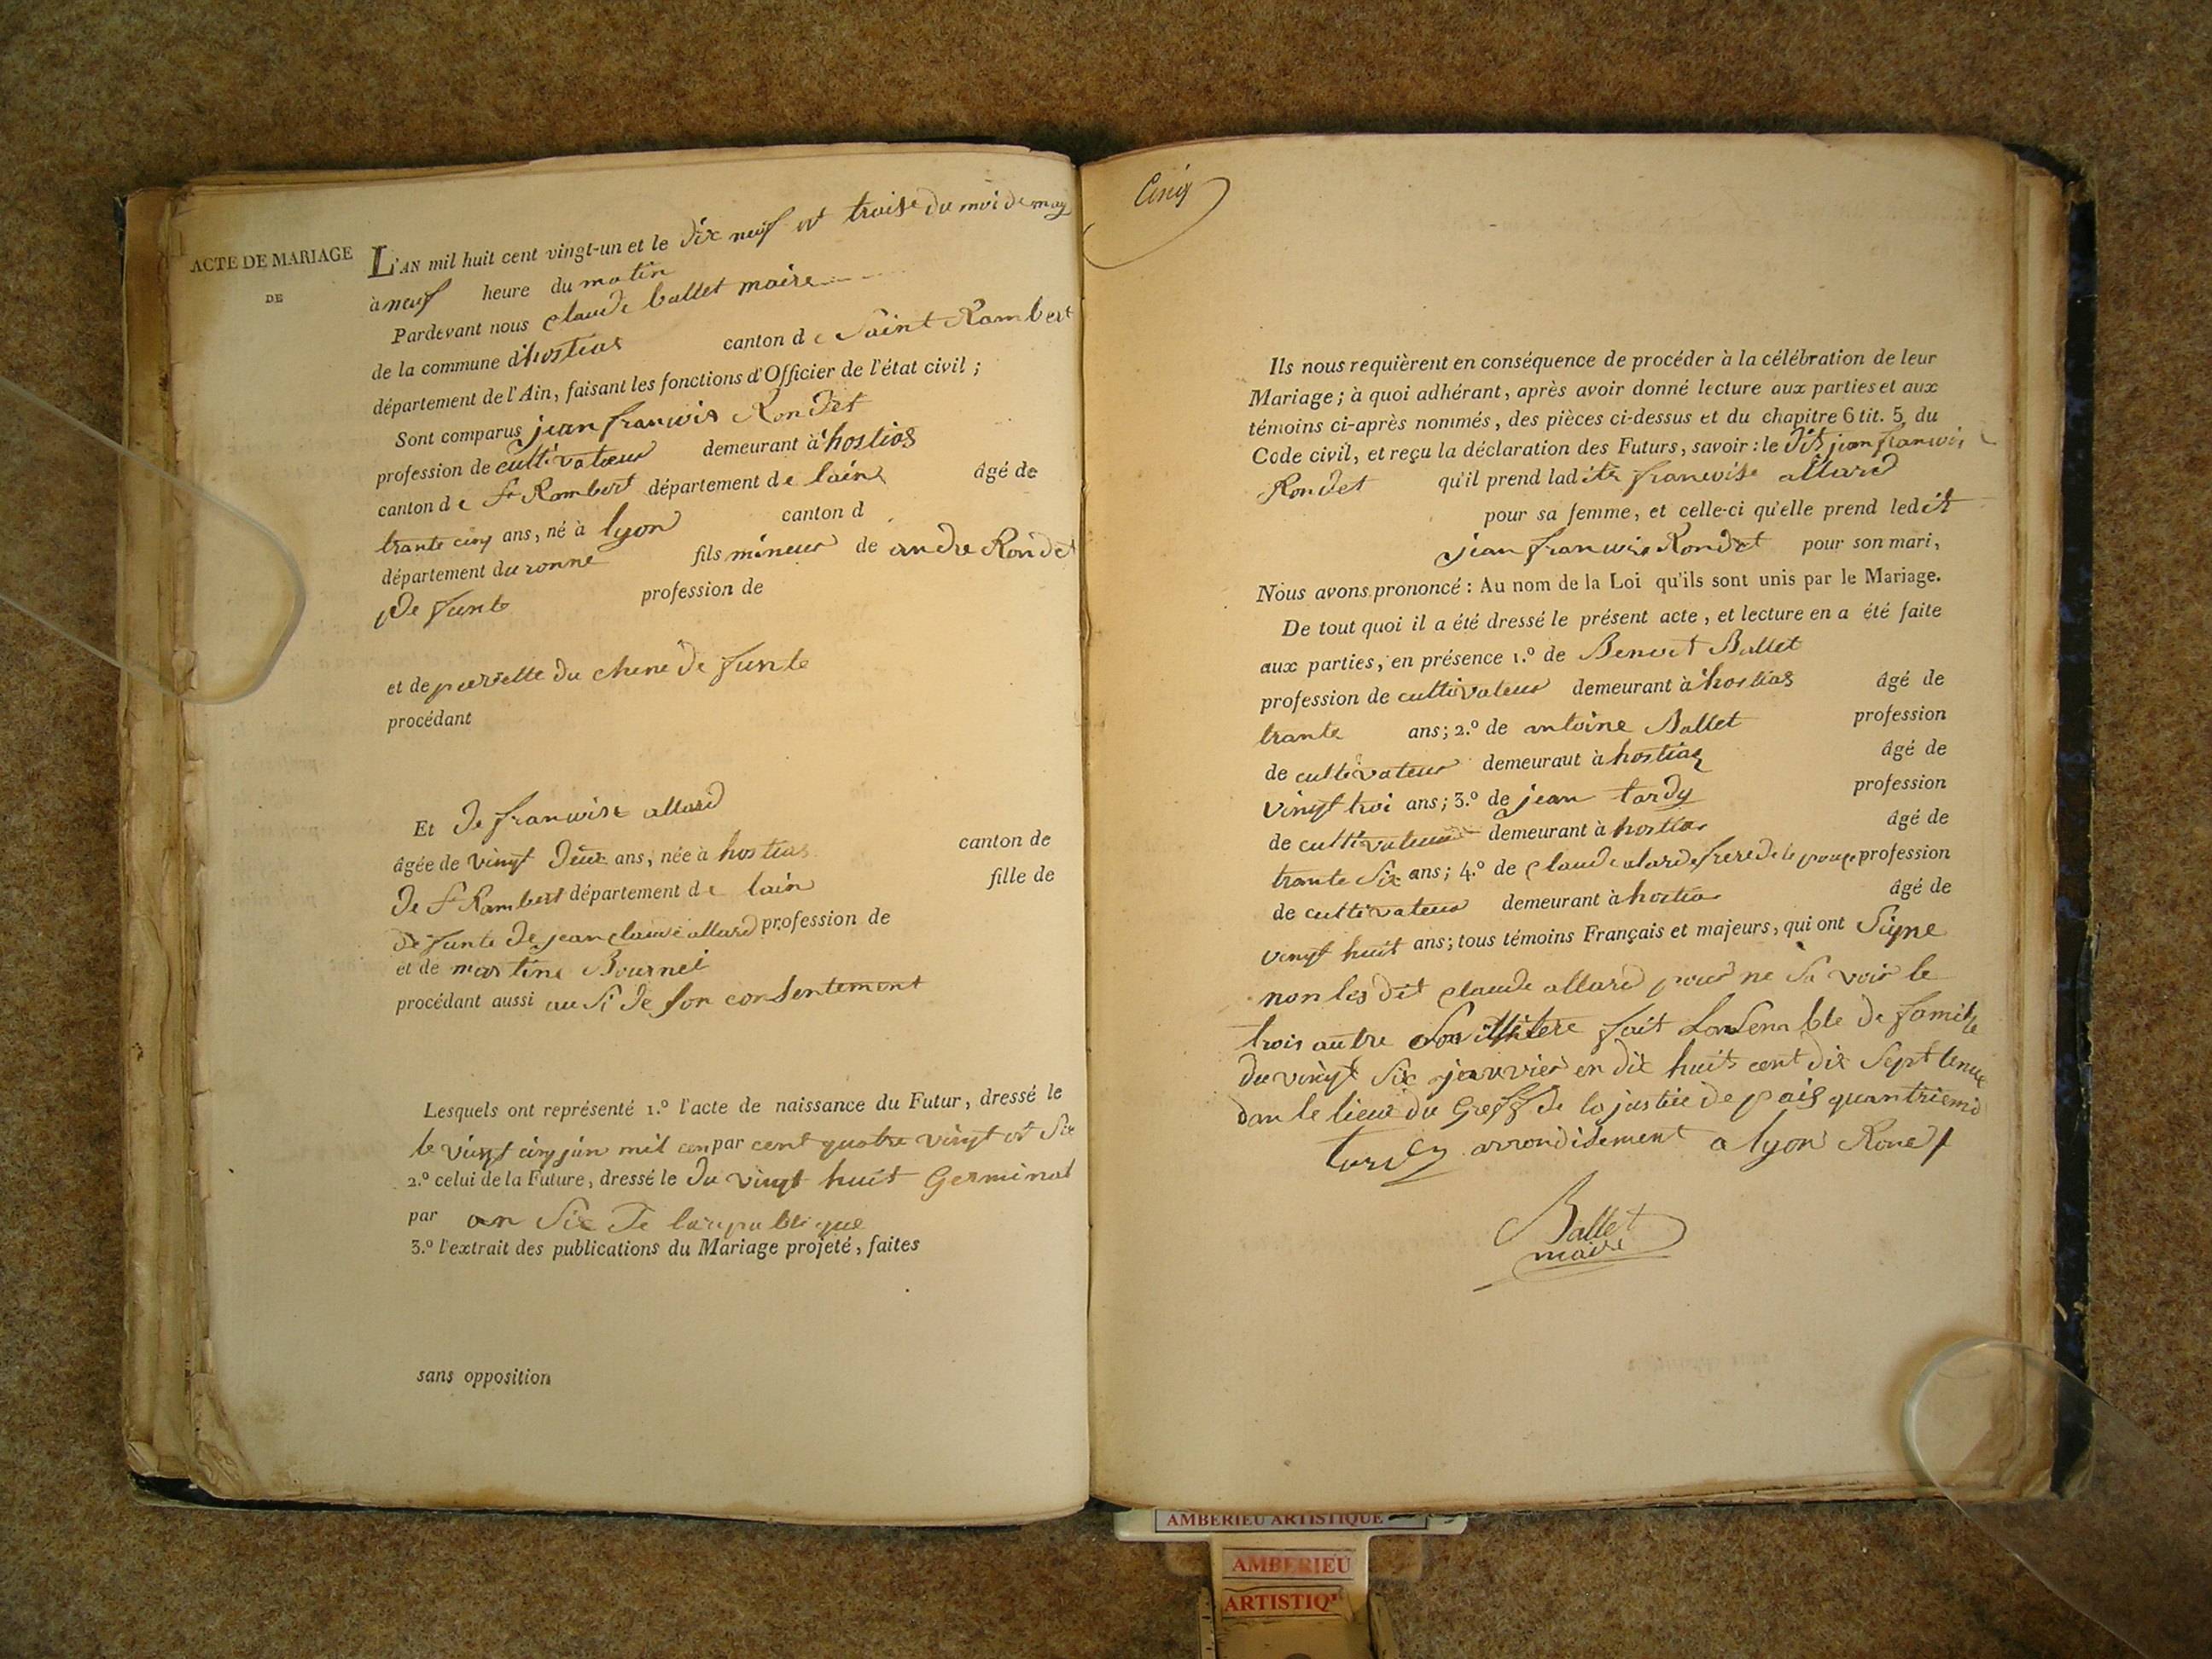 ACTE DE MARIAGE
DE
L'AN mil huit cent vingt-un et le dix neuf et traise du moi de may
à neuf heure du matin
Pardevant nous claude ballet maire
de la commune d'hostias canton de Saint Rambert
département de l'Ain, faisant les fonctions d'Officier de l'état civil ;
Sont comparus jean francois Rondet
profession de cultivateur demeurant à hostias
canton de St Rambert département de lain âgé de
trante cinq ans, né à lyon canton d
département du ronne fils mineur de andre Rondet
de funte profession de
et de pierrette du chene de funte
procédant
Et de francoise allard
âgée de vingt deux ans, née à hostias canton de
de St Rambert département de lain fille de
de funte de jean claude allard profession de
et de martine Bournei
procédant aussi au Si de son consentement
Lesquels ont représenté 1.º l'acte de naissance du Futur, dressé le
le vingt cinq juin mil par cent quatre vingt et Six
2.º celui de la Future, dressé le du vingt huit Germinal
par an Six de larepublique
3.º l'extrait des publications du Mariage projeté, faites
sans opposition
Cinq
Ils nous requièrent en conséquence de procéder à la célébration de leur
Mariage ; à quoi adhérant, après avoir donné lecture aux parties et aux
témoins ci-après nommés, des pièces ci-dessus et du chapitre 6 tit. 5 du
Code civil, et reçu la déclaration des Futurs, savoir : le dit jean francois
Rondet qu'il prend ladite francoise allard
pour sa femme, et celle-ci qu'elle prend ledit
jean francois Rondet pour son mari,
Nous avons prononcé : Au nom de la Loi qu'ils sont unis par le Mariage.
De tout quoi il a été dressé le présent acte, et lecture en a été faite
aux parties, en présence 1.º de Benoit Ballet
profession de cultivateur demeurant à hostias âgé de
trante ans ; 2.º de antoine Ballet profession
de cultivateur demeuraut à hostias âgé de
vingt troi ans ; 3.º de jean tardy profession
de cultivateur demeurant à hostias âgé de
trante Six ans ; 4.º de claude alard frere de profession
de cultivateur demeurant à hostias âgé de
vingt huit ans ; tous témoins Français et majeurs, qui ont Signe
non les dit claude allard pour ne Savoir le
trois autre fait Lansenble de famille
du vingt Six janvier en dix huit cent dix Sept tenue
dan le lieu du Greff de la justice de pais quantrieme
tardy arrondisement a lyon Rone
Ballet
maire
AMBERIEU ARTISTIQUE
AMBERIEU
ARTISTIQ